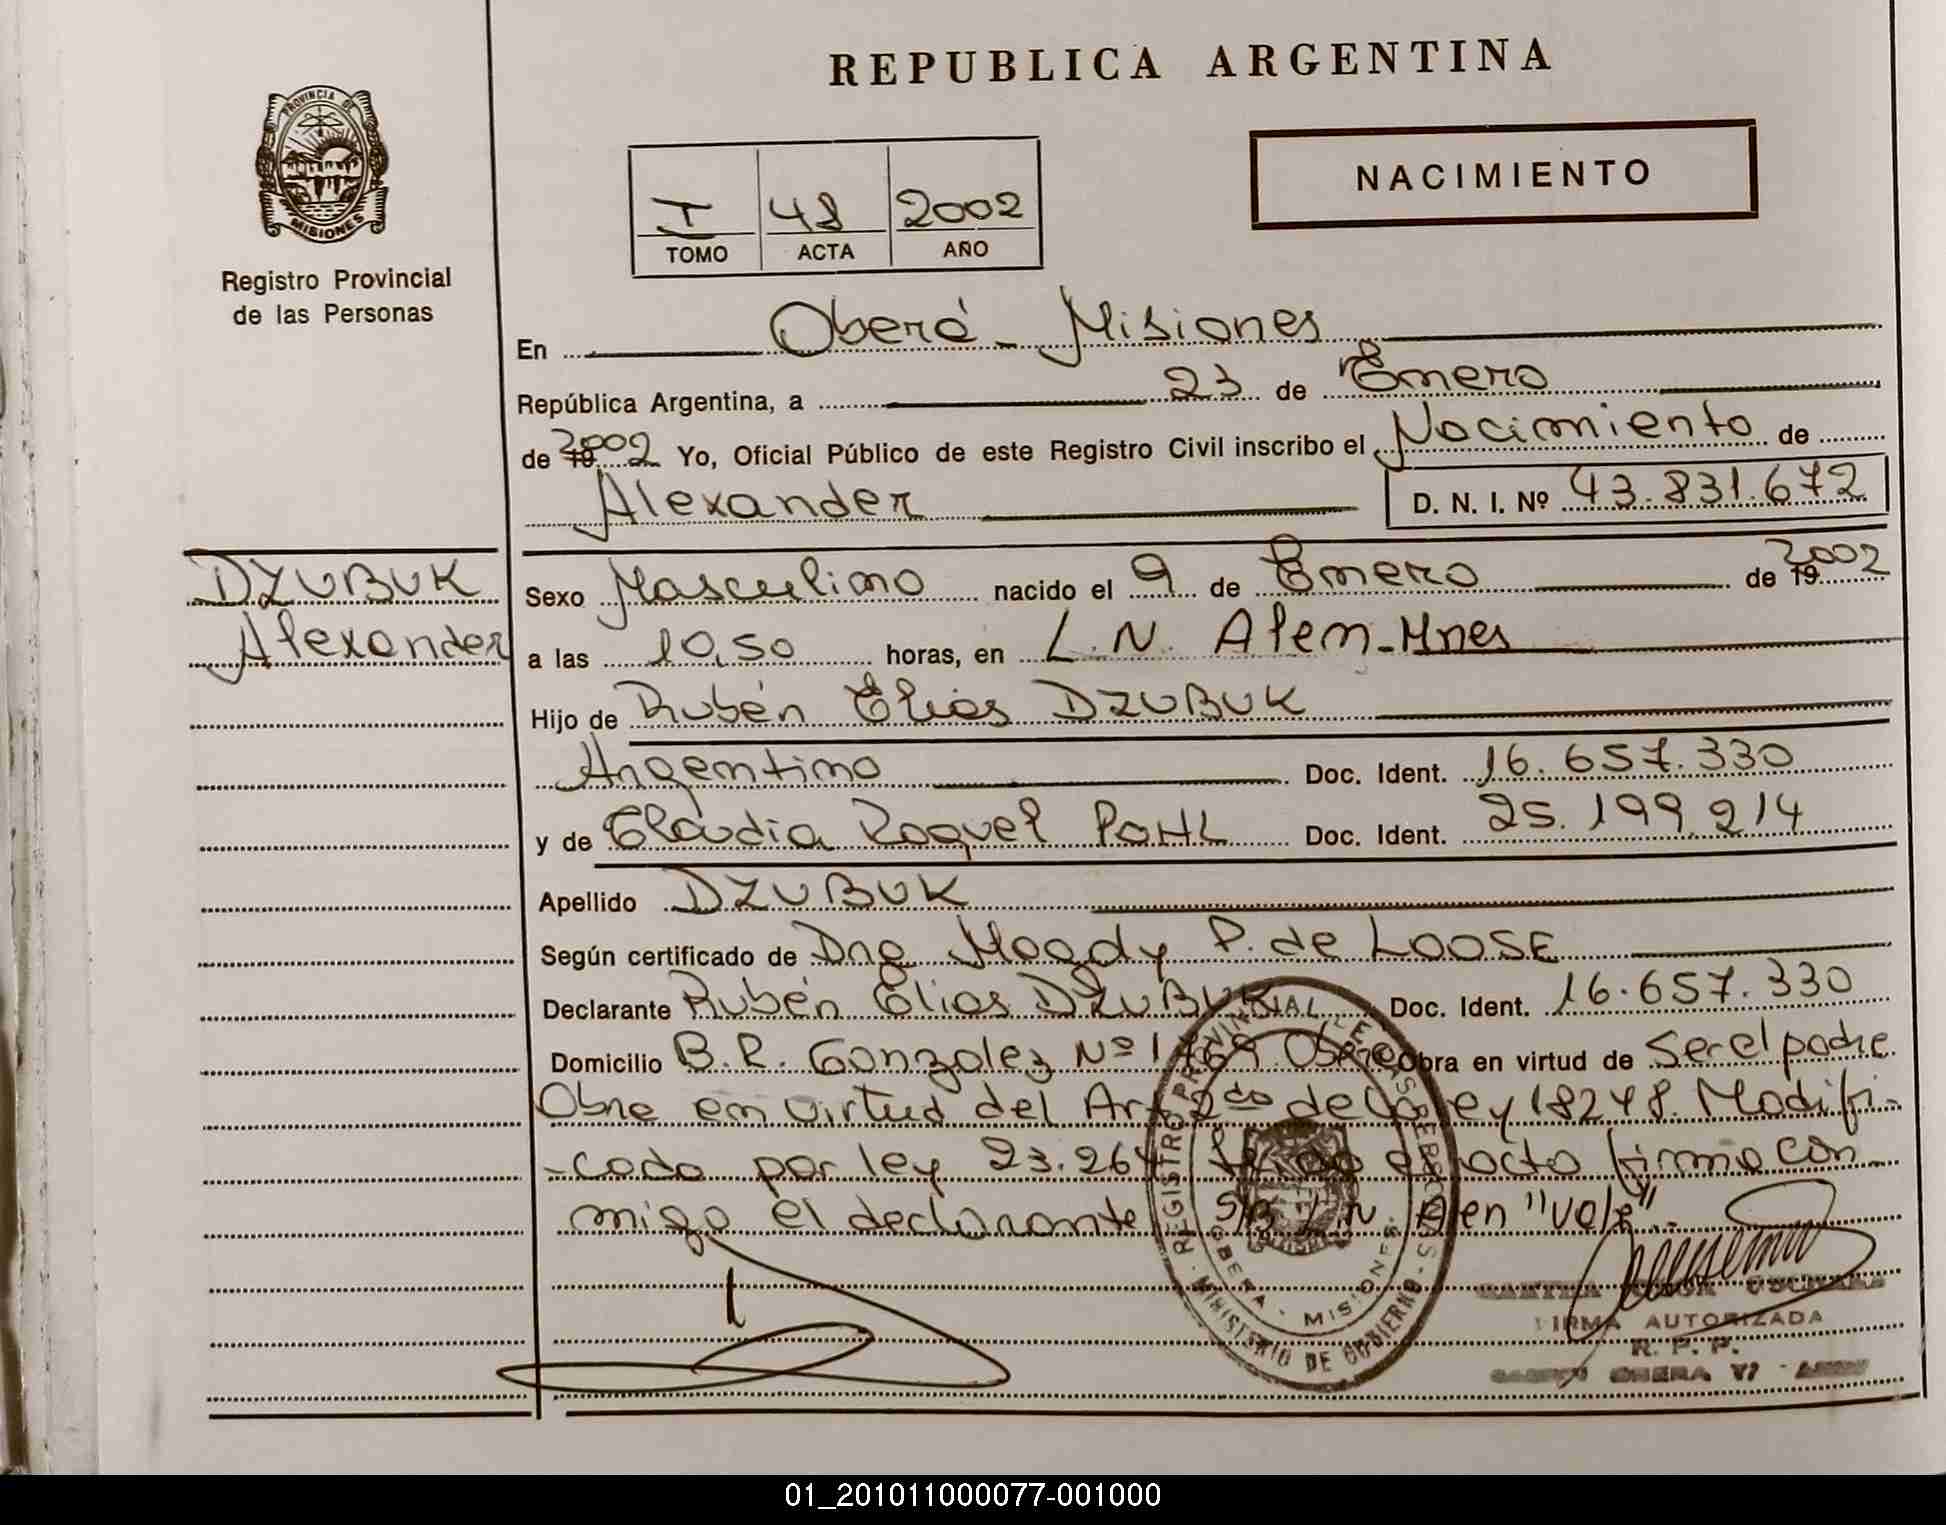 REPUBLICA ARGENTINA
PROVINCIA DE
MISIONES
Registro Provincial
de las Personas
NACIMIENTO
I 48 2002
TOMO ACTA AÑO
En Oberá - Misiones
República Argentina, a 23 de Enero
de 19 2002 Yo, Oficial Público de este Registro Civil inscribo el Nacimiento de
Alexander D. N. I. Nº 43.831.672
DZUBUK
Alexander
Sexo Masculino nacido el 9 de Enero de 19 2002
a las 10,50 horas, en L. N. Alem - Mnes
Hijo de Rubén Elias DZUBUK
Argentino Doc. Ident. 16.657.330
y de Claudia Raquel POHL Doc. Ident. 25.199.214
Apellido DZUBUK
Según certificado de Dra Moody P. de LOOSE
Declarante Rubén Elias DZUBUK Doc. Ident. 16.657.330
Domicilio B. R. Gonzalez Nº 1769 Obra en virtud de Ser el padre
Obra en virtud del Art 2do de la Ley 18248. Modifi-
-cado por ley 23.264 el acto firma con-
migo el declarante S/B L N Alen "vale".
REGISTRO PROVINCIAL DE LAS PERSONAS
OBERA - MISIONES
MINISTERIO DE GOBIERNO
FIRMA AUTORIZADA
R. P. P.
OBERA
01_201011000077-001000